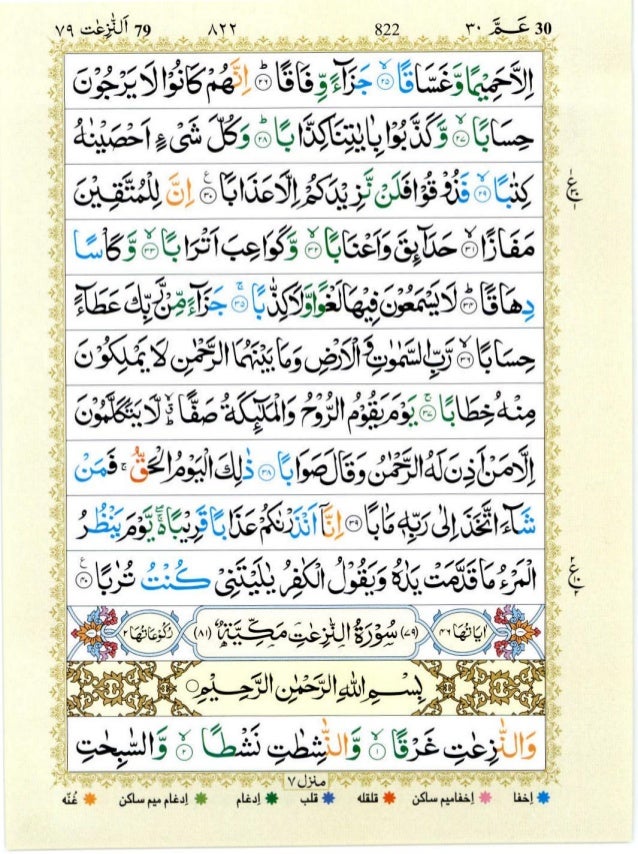 30 عَمَّ ٣٠ 822 ٨٢٢ 79 اَلنّٰزِعٰت ٧٩
اِلَّا حَمِيْمًا وَّغَسَّاقًا ۙ‏﴿۲۵﴾ جَزَآءً وِّفَاقًا ؕ‏﴿۲۶﴾ اِنَّهُمْ كَانُوْا لَا يَرْجُوْنَ
حِسَابًا ۙ‏﴿۲۷﴾ وَّكَذَّبُوْا بِاٰيٰتِنَا كِذَّابًا ؕ‏﴿۲۸﴾ وَكُلَّ شَىْءٍ اَحْصَيْنٰهُ
كِتٰبًا ۙ‏﴿۲۹﴾ فَذُوْقُوْا فَلَنْ نَّزِيْدَكُمْ اِلَّا عَذَابًا ‏﴿۳۰﴾ اِنَّ لِلْمُتَّقِيْنَ
مَفَازًا ۙ‏﴿۳۱﴾ حَدَآئِقَ وَاَعْنَابًا ۙ‏﴿۳۲﴾ وَّكَوَاعِبَ اَتْرَابًا ۙ‏﴿۳۳﴾ وَّكَاْسًا
دِهَاقًا ؕ‏﴿۳۴﴾ لَا يَسْمَعُوْنَ فِيْهَا لَغْوًا وَّلَا كِذّٰبًا ۚ‏﴿۳۵﴾ جَزَآءً مِّنْ رَّبِّكَ عَطَآءً
حِسَابًا ۙ‏﴿۳۶﴾ رَّبِّ السَّمٰوٰتِ وَالْاَرْضِ وَمَا بَيْنَهُمَا الرَّحْمٰنِ لَا يَمْلِكُوْنَ
مِنْهُ خِطَابًا ۚ‏﴿۳۷﴾ يَوْمَ يَقُوْمُ الرُّوْحُ وَالْمَلٰٓئِكَةُ صَفًّا ۙۗ لَّا يَتَكَلَّمُوْنَ
اِلَّا مَنْ اَذِنَ لَهُ الرَّحْمٰنُ وَقَالَ صَوَابًا ‏﴿۳۸﴾ ذٰلِكَ الْيَوْمُ الْحَقُّ ۚ فَمَنْ
شَآءَ اتَّخَذَ اِلٰى رَبِّهٖ مَاٰبًا ‏﴿۳۹﴾ اِنَّاۤ اَنْذَرْنٰكُمْ عَذَابًا قَرِيْبًا ۖۚ يَّوْمَ يَنْظُرُ
الْمَرْءُ مَا قَدَّمَتْ يَدٰهُ وَيَقُوْلُ الْكٰفِرُ يٰلَيْتَنِىْ كُنْتُ تُرٰبًا ‏﴿۴۰﴾
اٰيَاتُهَا ٤٦ (٧٩) سُوْرَةُ النّٰزِعٰتِ مَكِّيَّةٌ (٨١) رُكُوْعَاتُهَا ٢
بِسْمِ اللّٰهِ الرَّحْمٰنِ الرَّحِيْمِ
وَالنّٰزِعٰتِ غَرْقًا ۙ‏﴿۱﴾ وَّالنّٰشِطٰتِ نَشْطًا ۙ‏﴿۲﴾ وَّالسّٰبِحٰتِ
منزل ٧
اِخفا اِخفامیم ساکن قلقله قلب اِدغام اِدغام میم ساکن غُنّه